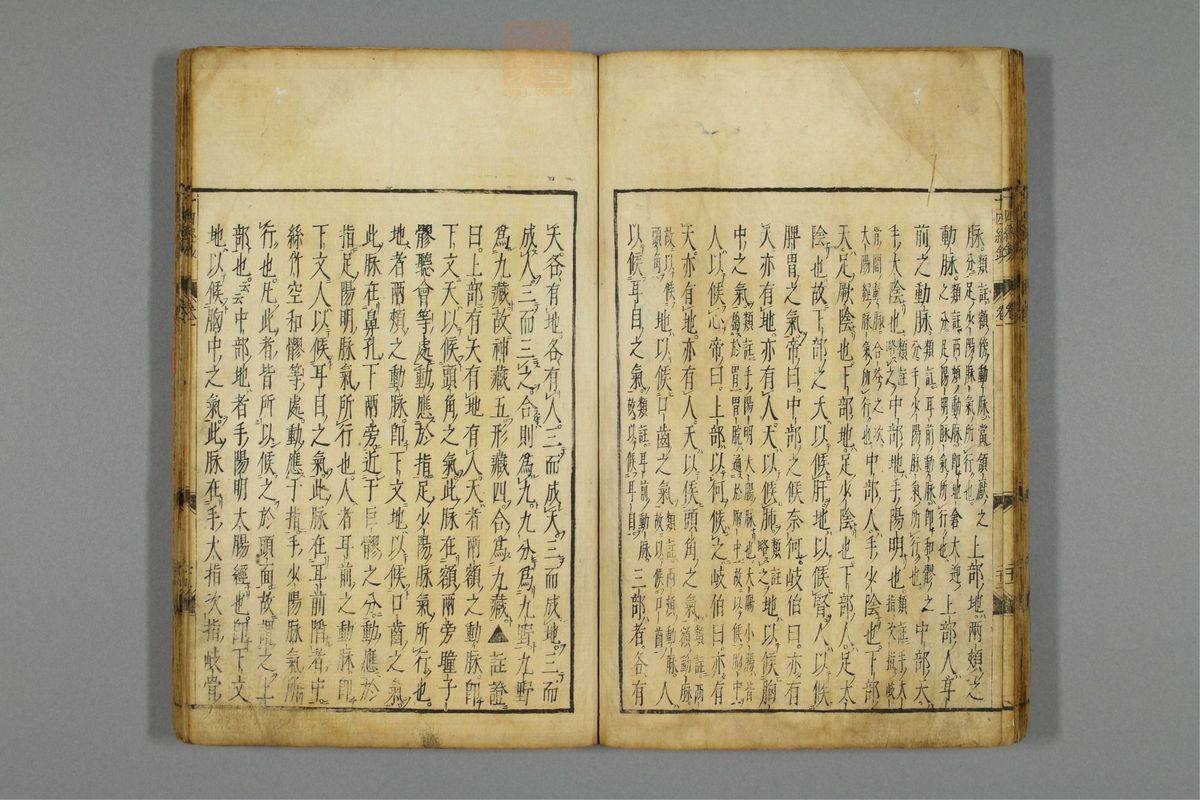 脉。類註額傍動脉當頷厭之分足少陽脉氣所行也上部地兩頰之
動脉。類註兩頰動脉卽地倉大迎之分足陽明脉氣所行也上部人耳
前之動脉類註耳前動脉卽和髎之分手少陽脉氣所行也中部天
手太陰也略之中部地手陽明也類註手大指次指岐
骨間動脉合谷之次太陽經脉氣所行也中部人手少陰也下部
天足厥陰也下部地足少陰也下部人足太
陰也故下部之天以候肝地以候腎人以候
脾胃之氣帝曰中部之候奈何岐伯曰亦有
天亦有地亦有人天以候肺類註略之地以候胸
中之氣類註手陽明大腸也大腸小腸皆屬於胃胃脘通於胸中故以候胸中
人以候心帝曰上部以何候之岐伯曰亦有
天亦有地亦有人天以候頭角之氣類註兩額動脉
故以候頭角地以候口齒之氣類註兩頰動脉故以候口齒人
以候耳目之氣類註耳前動脉故以候耳目三部者各有
天各有地各有人三而成天三而成地三而
成人三而三之合則爲九九分爲九野九野
爲九藏故神藏五形藏四合爲九藏▲註證
曰上部有天有地有人天者兩額之動脉卽
下文天以候頭角之氣此脉在額兩旁瞳子
髎聽會等處動應於指足少陽脉氣所行也
地者兩頰之動脉卽下文地以候口齒之氣
此脉在鼻孔下兩旁近于巨髎之分動應於
指足陽明脉氣所行也人者耳前之動脉卽
下文人以候耳目之氣此脉在耳前陷者中
絲竹空和髎等處動應于指手少陽脉氣所
行也凡此者皆所以候之於頭面故謂之上
部也云云中部地者手陽明太腸經也卽下文
地以候胸中之氣此脉在手太指次指岐骨